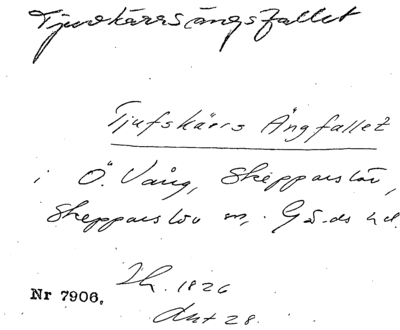 Tjuvkärrsängsfallet
Tjufskärs Ängfallet
i Ö. Vång, Skepparslöv,
Skepparslöv sn, Gä.ds hd.
Lh. 1826
Nr 7906.
Akt 28.